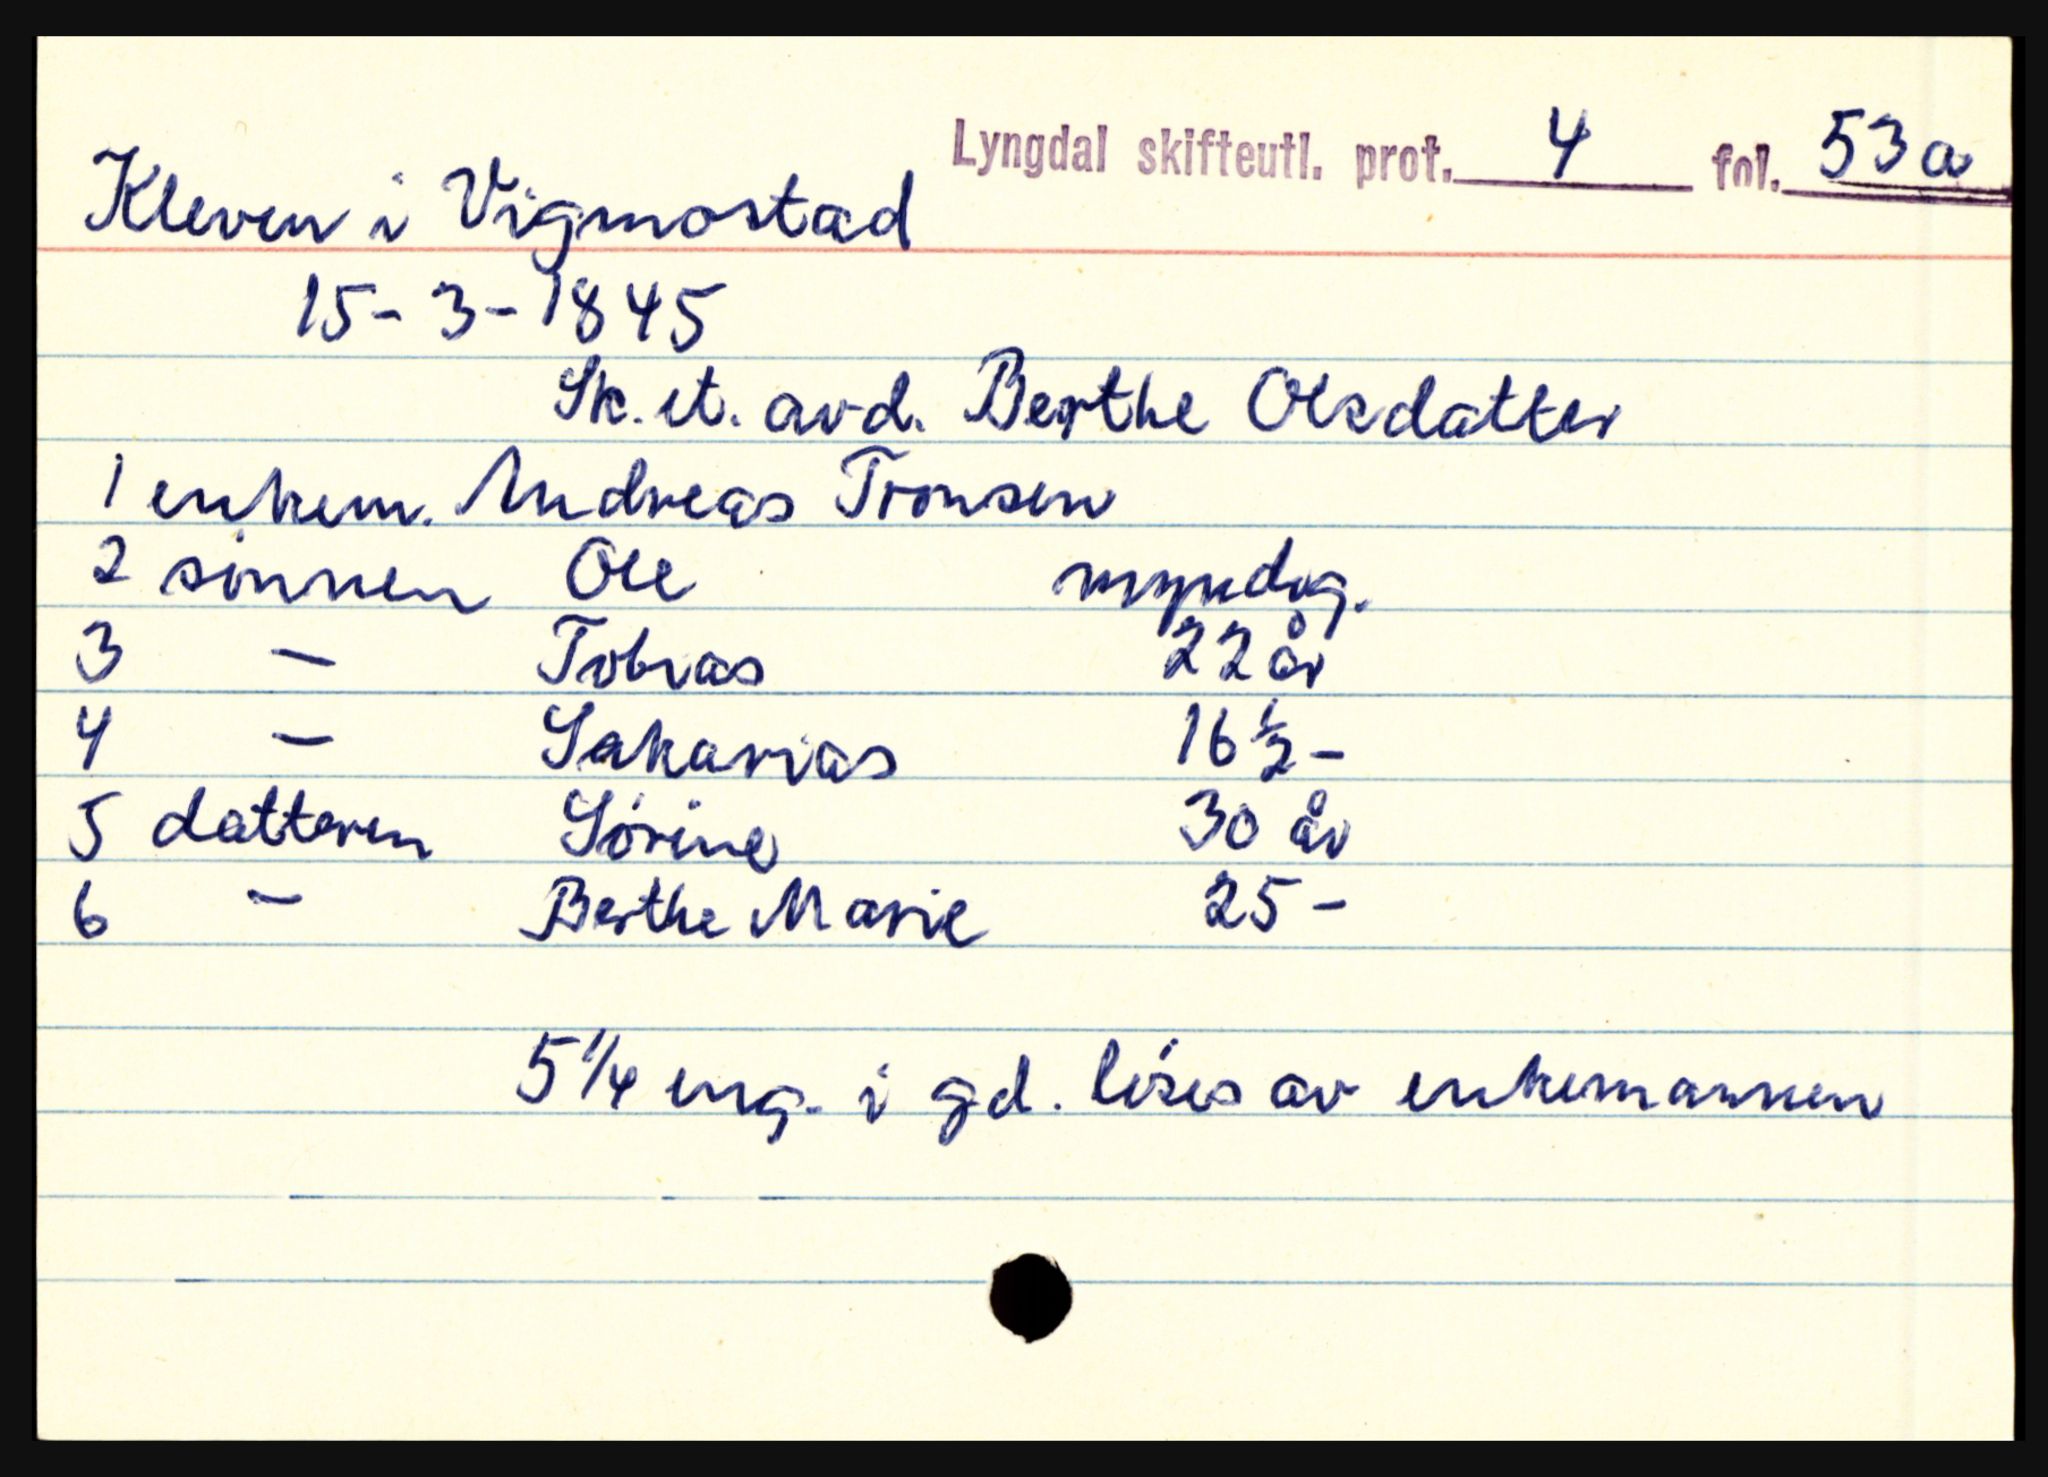 Lyngdal skifteutl. prot. 4 fol. 53a
Kleven i Vigmostad
15-3-1845
Sk. et. avd. Berthe Olsdatter
1 enkem. Andreas Tronsen
2 sönnen Ole myndig.
3 — Tobias 22 år
4 — Sakarias 16 ½ -
5 datteren Sörine 30 år
6 — Berthe Marie 25 -
5 1/4 eng. i gd. löses av enkemannen